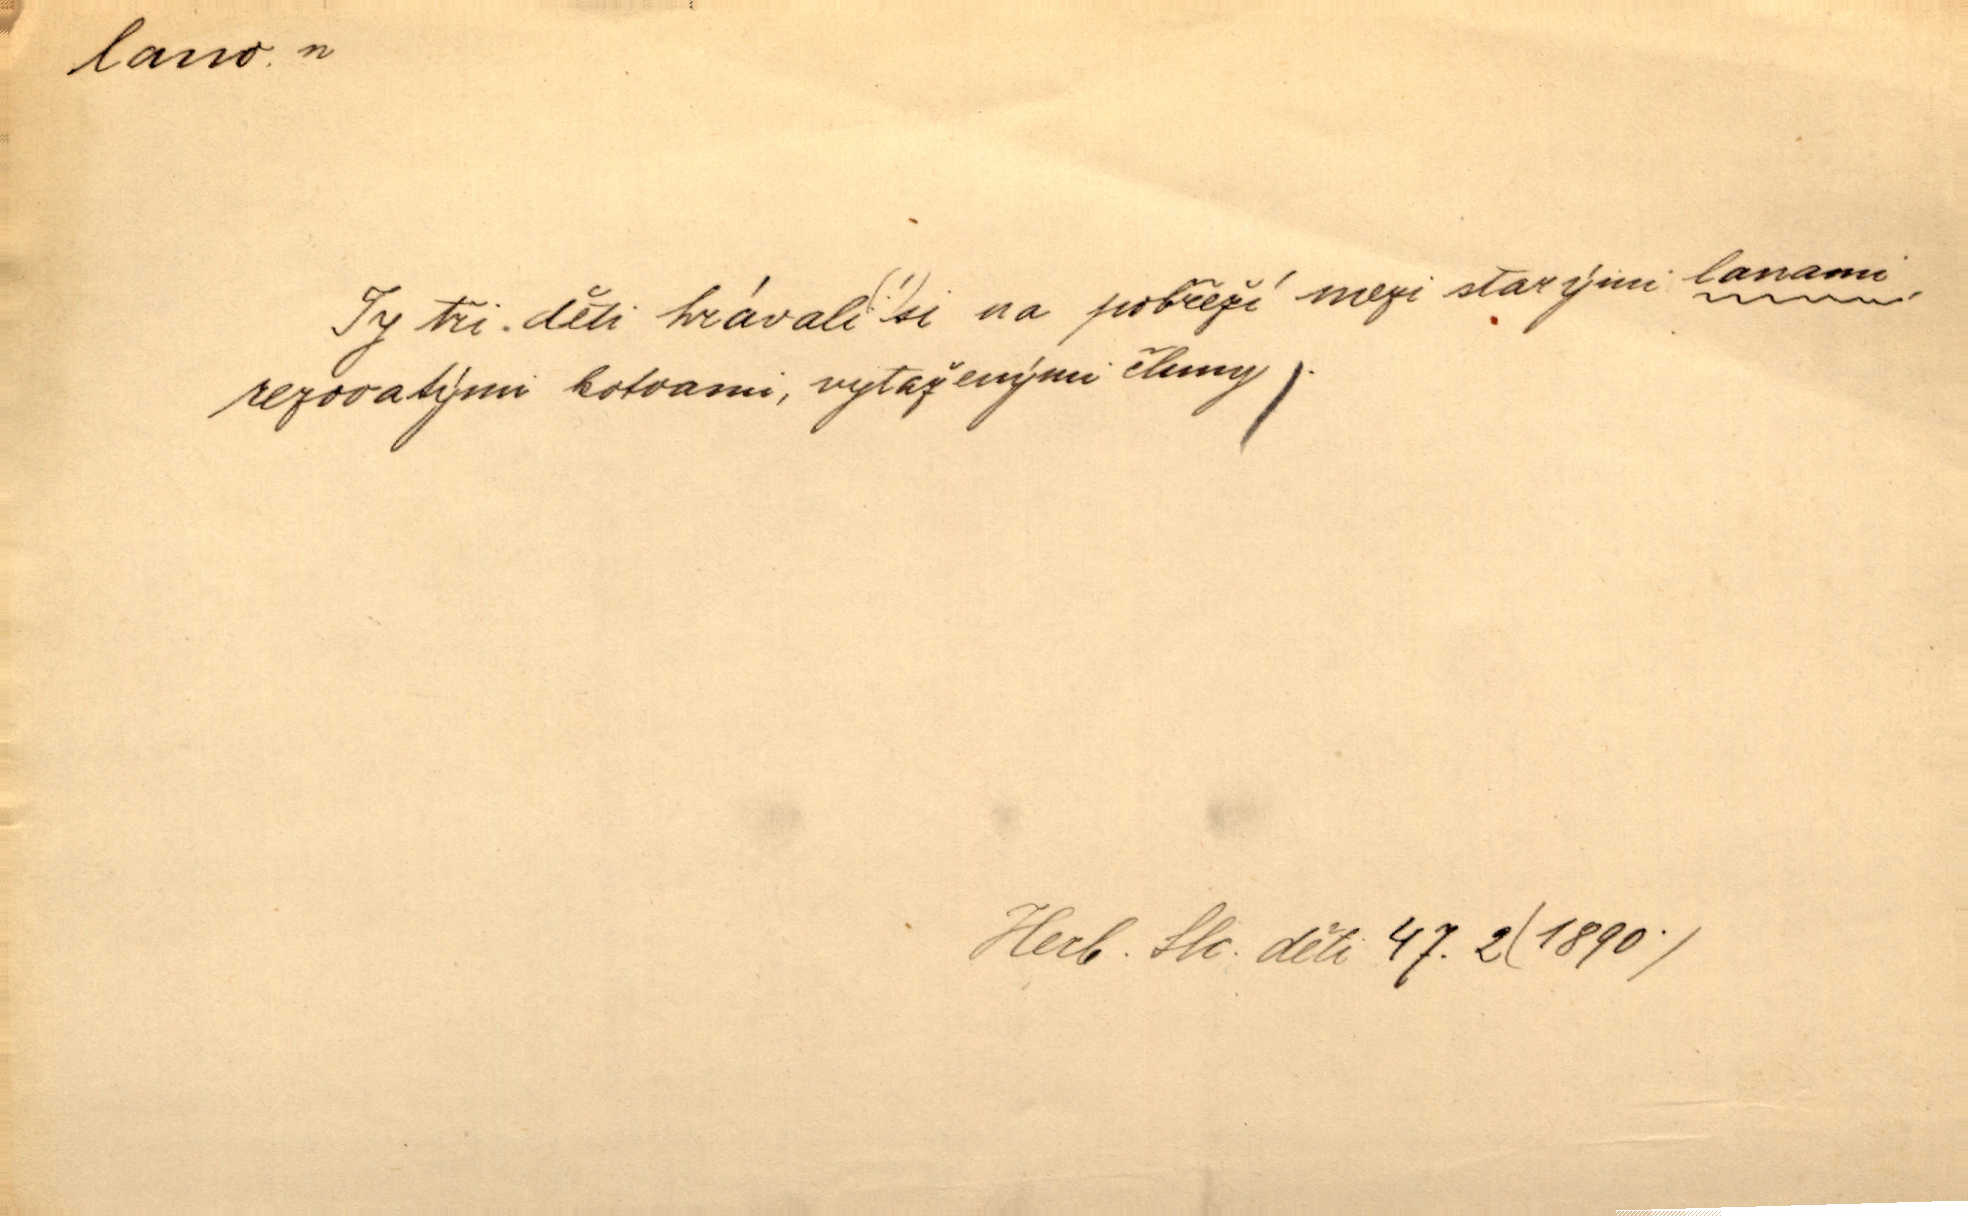 lano. n
Ty tři děti hrávali (!) si na pobřeží mezi starými lanami,
rezovatými kotvami, vytaženými čluny).
Herb. Slc. děti 47. 2 (1890.)